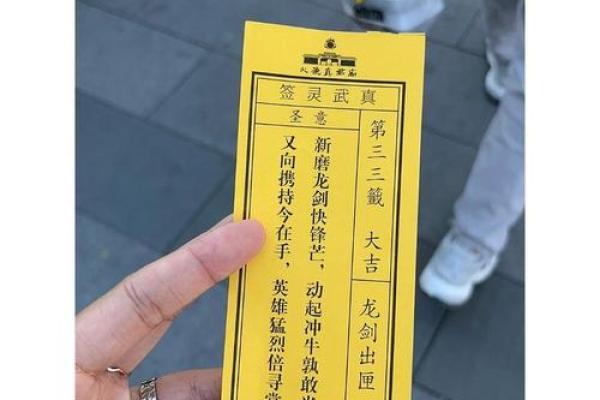 真武灵签
第三三籤 大吉
龙剑出匣
圣意
新磨龙剑快锋芒，动起冲牛孰敢
又向携持今在手，英雄猛烈倍寻常